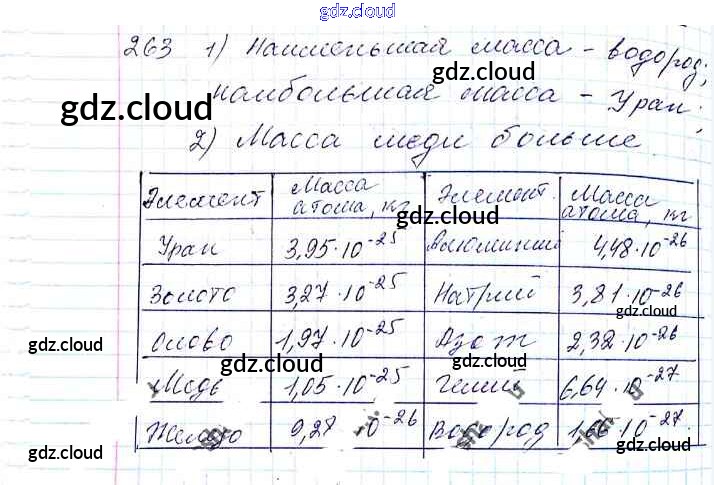 gdz.cloud
gdz.cloud
263 1) Наименьшая масса - водород;
gdz.cloud
gdz.cloud
наибольшая масса - Уран;
gdz.cloud
2) Масса меди больше
Элемент Масса атома, кг Элемент Масса атома, кг
gdz.cloud
Уран 3,95·10⁻²⁵ Алюминий 4,48·10⁻²⁶
Золото 3,27·10⁻²⁵ Натрий 3,81·10⁻²⁶
Олово 1,97·10⁻²⁵ Азот 2,32·10⁻²⁶
gdz.cloud
gdz.cloud
gdz.cloud
Медь 1,05·10⁻²⁵ Гелий 6,64·10⁻²⁷
Железо 9,28·10⁻²⁶ Водород 1,66·10⁻²⁷
gdz.cloud
gdz.cloud